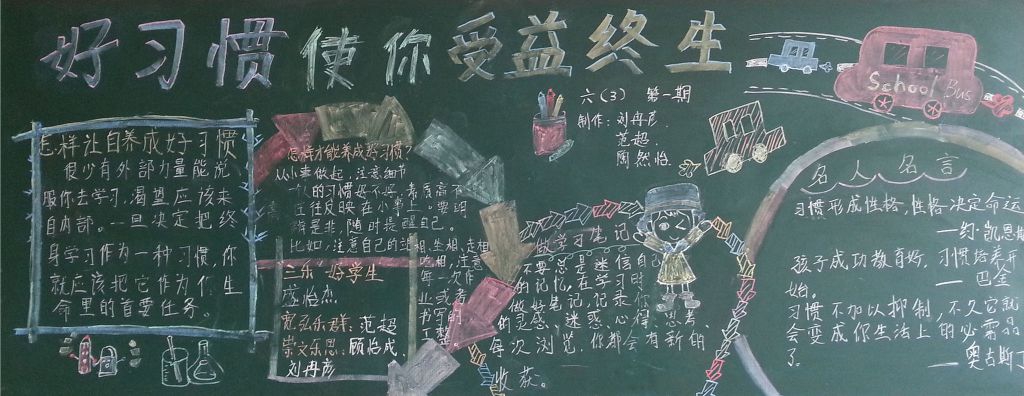 好习惯使你受益终生
六(3) 第一期
制作:刘冉彦.
范超.
陶然怡.
School Bus
怎样让自养成好习惯
很少有外部力量能说
服你去学习,渴望应该来
自内部。一旦决定把终
身学习作为一种习惯,你
就应该把它作为你生
命里的首要任务。
怎样才能养成好习惯?
从小事做起,注意细节
的习惯好不好,素质高不
往往反映在小事上。要明
确是非,随时提醒自己。
比如,注意自己的站相、坐相、走相
吃相,注意
每一次作
业或者
书写的
工整
三乐好学生
盛怡杰
宽弘乐群:范超
崇文乐思:顾怡成、
刘冉彦
做学习笔记
不要总是迷信自己
的记忆,在学习时
做好笔记,记录你
的灵感、迷惑、心得、思考、
每次浏览,你都会有新的
收获。
名人名言
习惯形成性格,性格决定命运
—约·凯恩斯
孩子成功教育好,习惯培养开
始。
—巴金
习惯不加以抑制,不久它就
会变成你生活上的必需品
了
—奥古斯丁